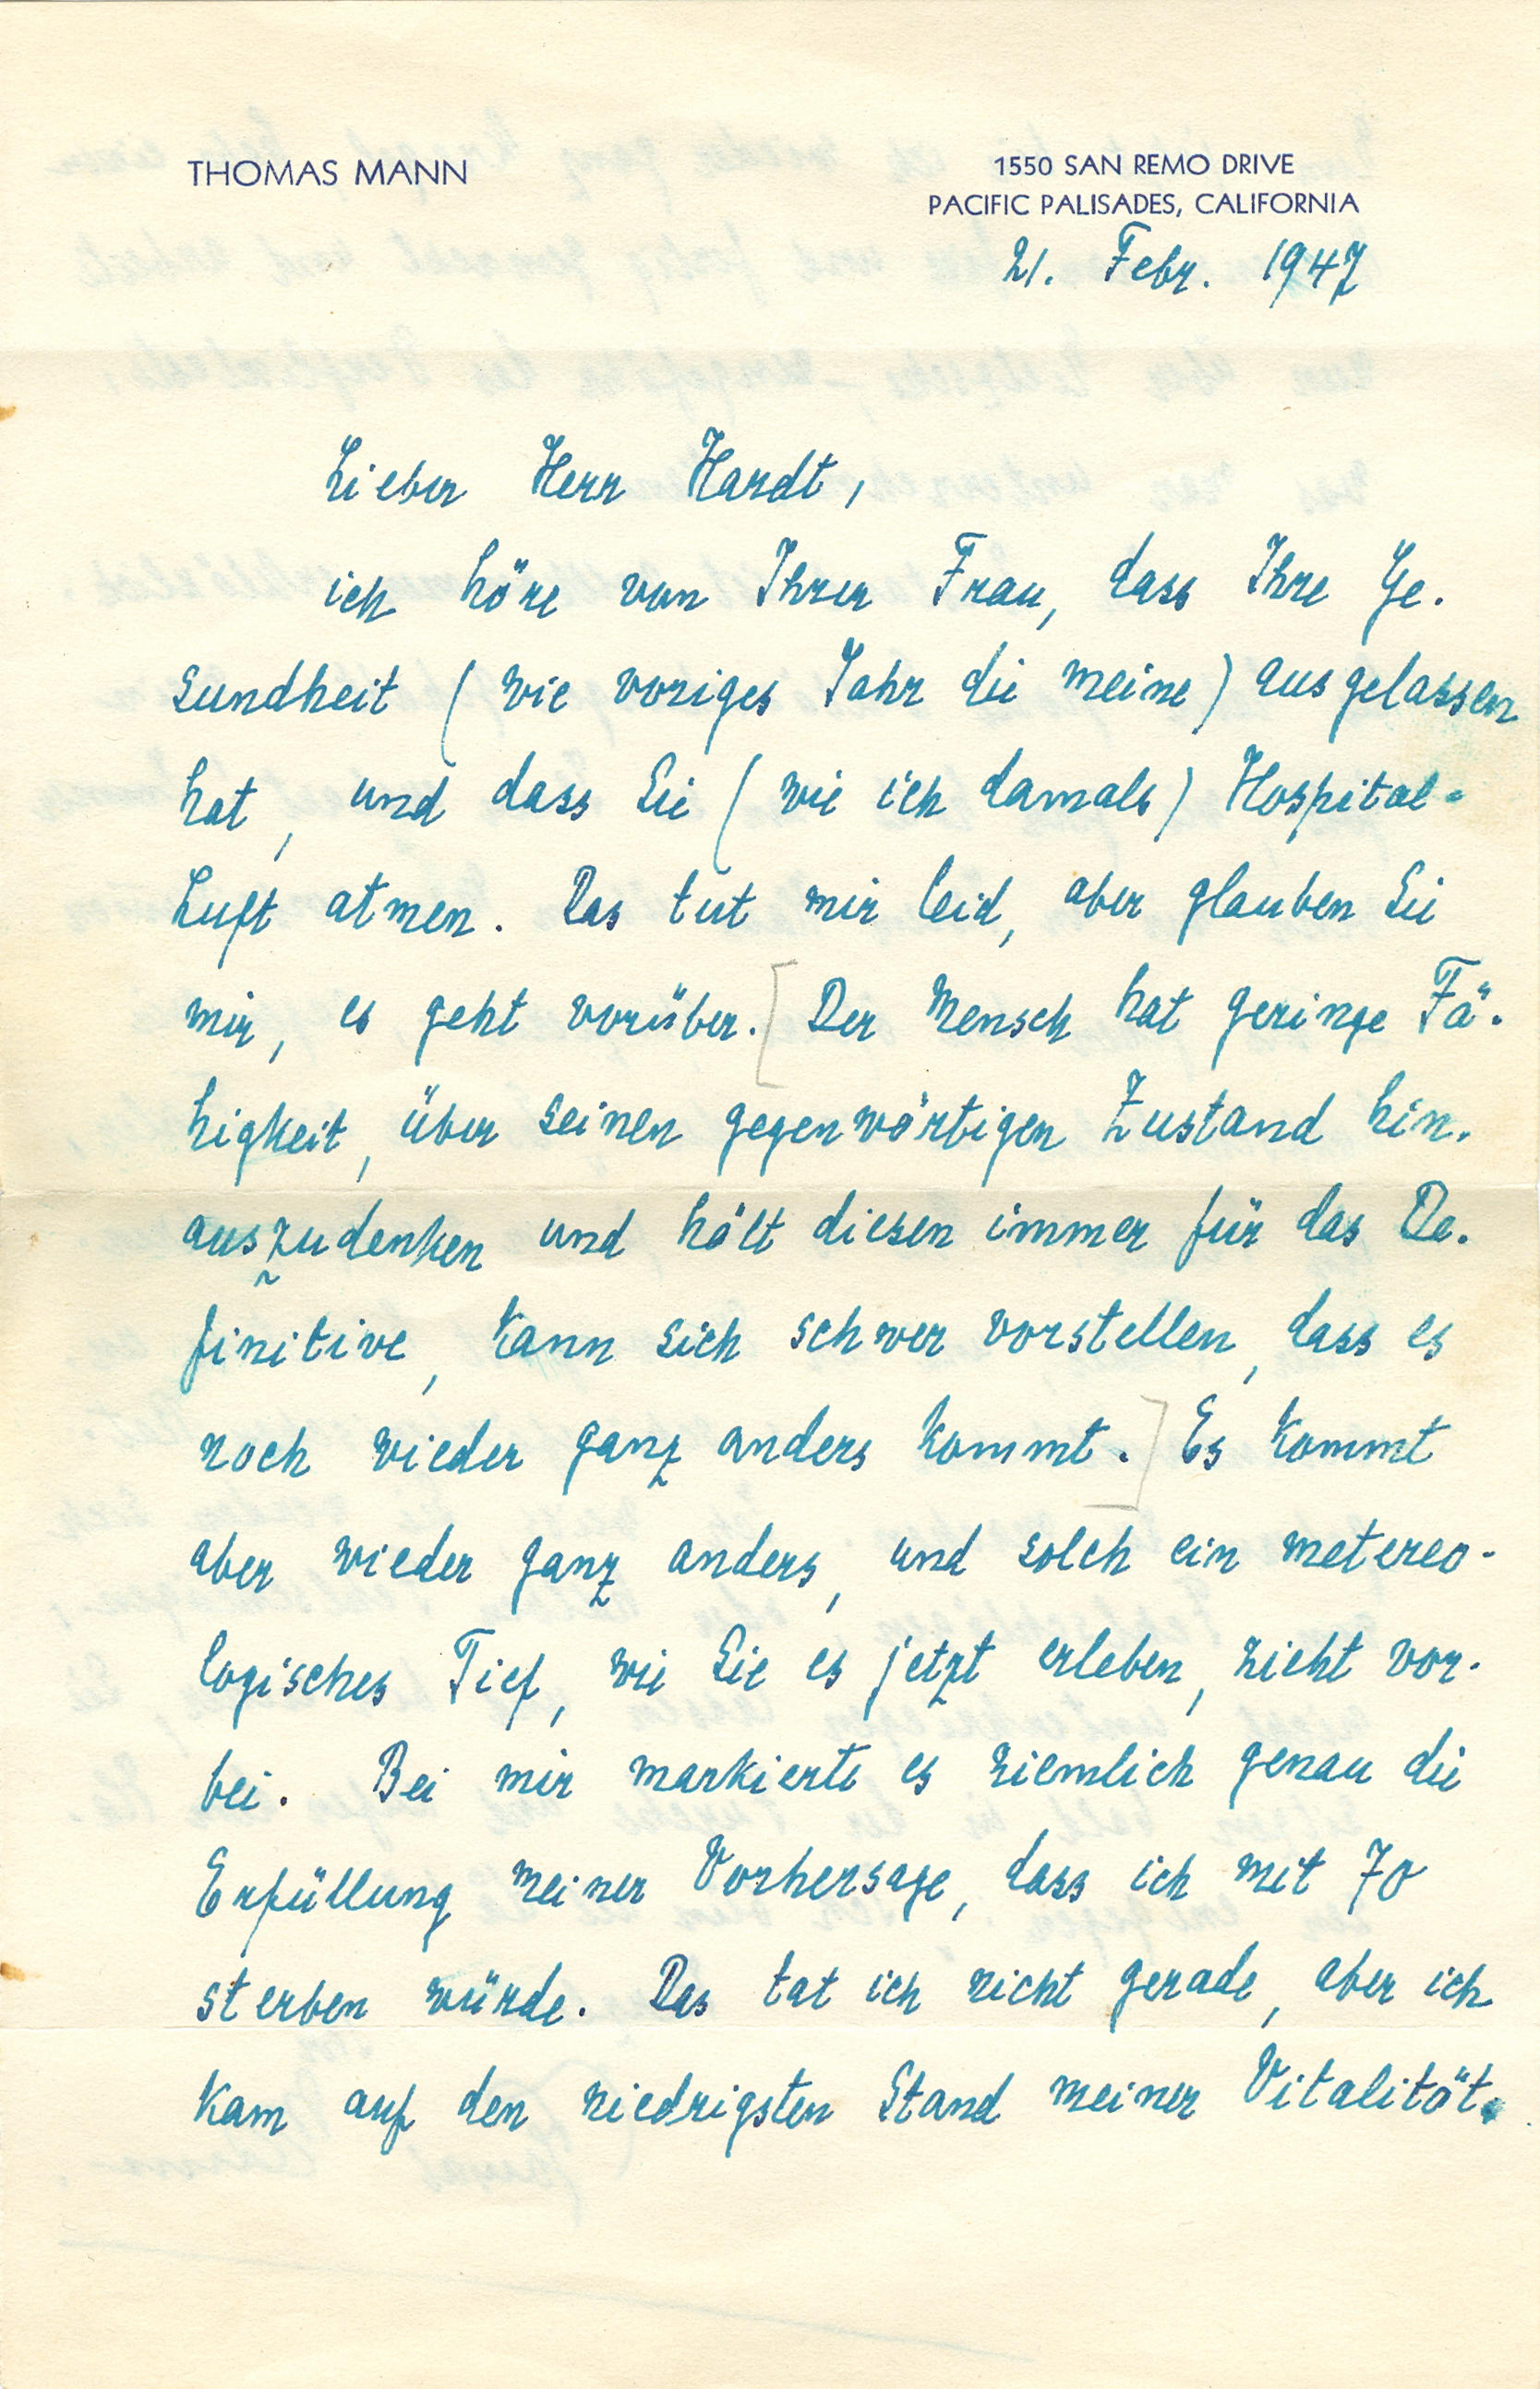 THOMAS MANN
1550 SAN REMO DRIVE
PACIFIC PALISADES, CALIFORNIA
21. Febr. 1947
Lieber Herr Hardt,
ich höre von Ihrer Frau, dass Ihre Ge-
sundheit (wie voriges Jahr die meine) ausgelassen
hat, und dass Sie (wie ich damals) Hospital-
Luft atmen. Das tut mir leid, aber glauben Sie
mir, es geht vorüber. [Der Mensch hat geringe Fä-
higkeit, über seinen gegenwärtigen Zustand hin-
auszudenken und hält diesen immer für das De-
finitive, kann sich schwer vorstellen, dass es
noch wieder ganz anders kommt.] Es kommt
aber wieder ganz anders, und solch ein metereo-
logisches Tief, wie Sie es jetzt erleben, zieht vor-
bei. Bei mir markierte es ziemlich genau die
Erfüllung meiner Vorhersage, dass ich mit 70
sterben würde. Das tat ich nicht gerade, aber ich
kam auf den niedrigsten Stand meiner Vitalität.